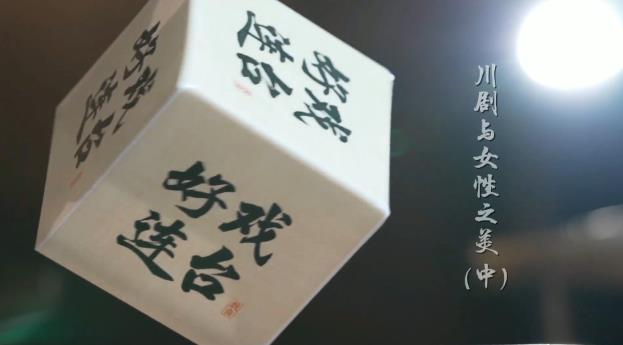 好戏
连台
好戏
连台
好戏
连台
川剧与女性之美(中)